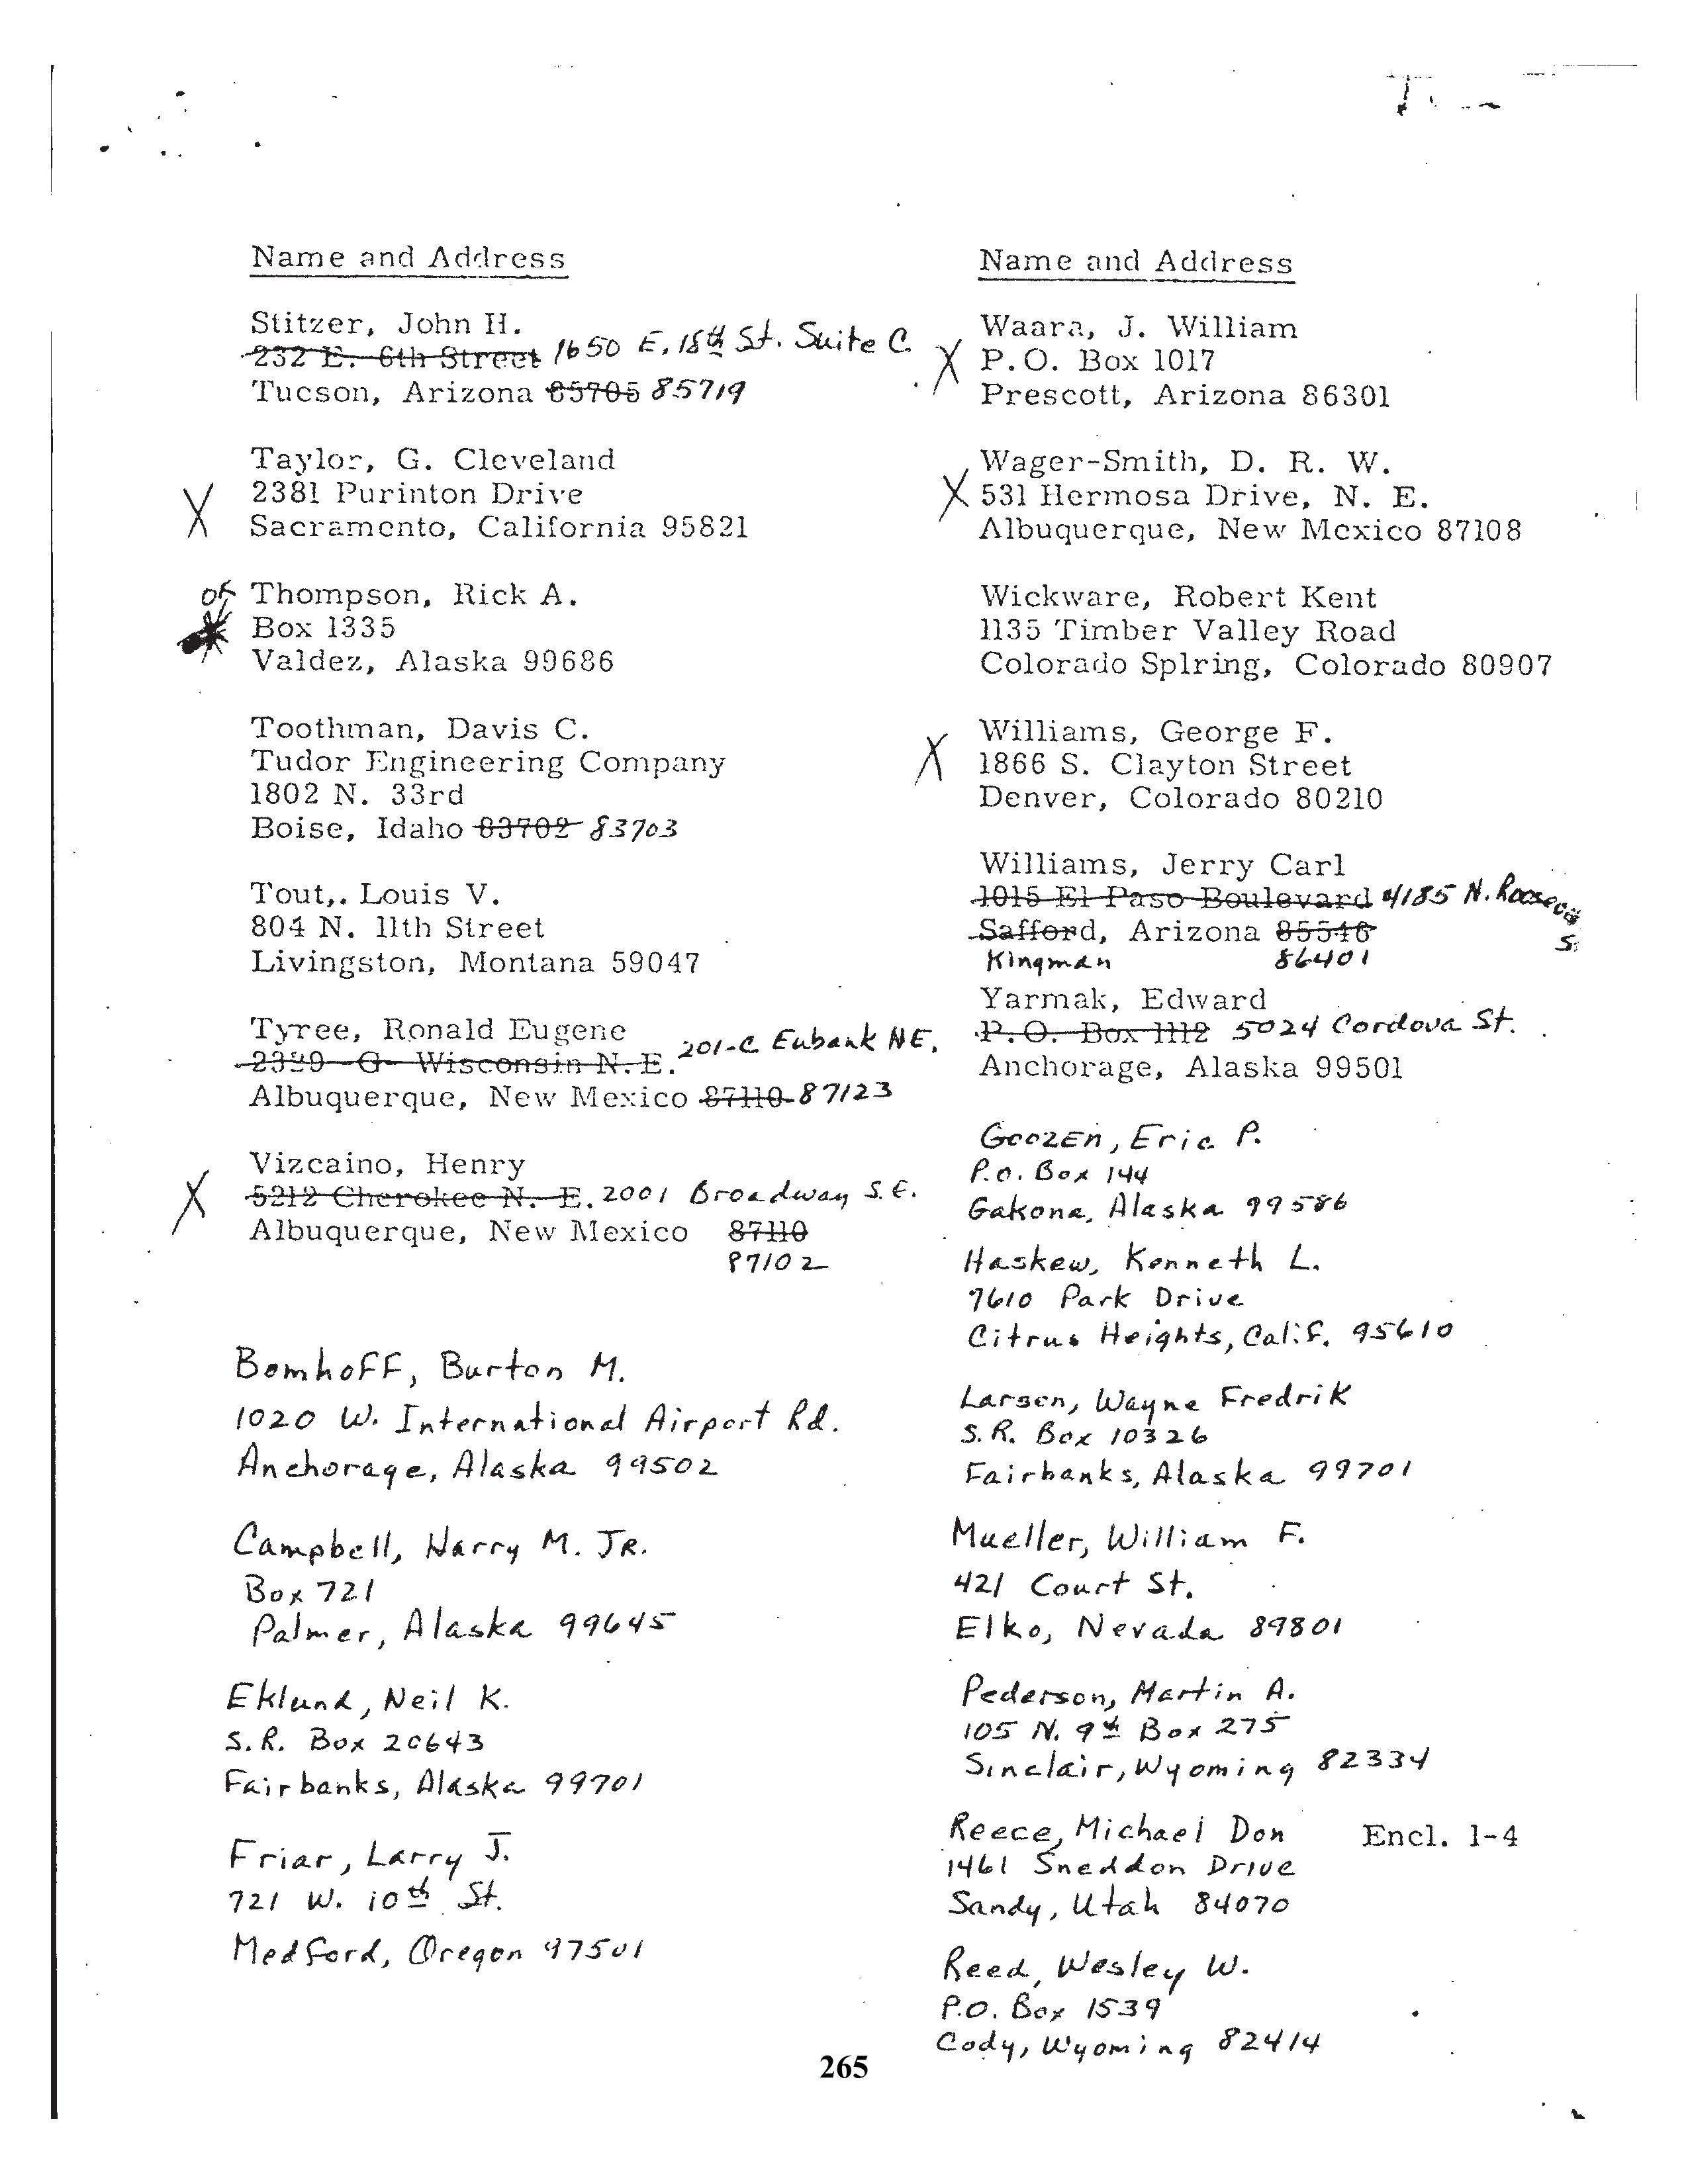 Name and Address
Stitzer, John H.
232 E. 6th Street 1650 E. 18th St. Suite C.
Tucson, Arizona 85705 85719
X
Taylor, G. Cleveland
2381 Purinton Drive
Sacramento, California 95821
ok
Thompson, Rick A.
Box 1335
Valdez, Alaska 99686
Toothman, Davis C.
Tudor Engineering Company
1802 N. 33rd
Boise, Idaho 83702 83703
Tout,. Louis V.
804 N. 11th Street
Livingston, Montana 59047
Tyree, Ronald Eugene
2329 G Wisconsin N.E. 201-C Eubank NE.
Albuquerque, New Mexico 87110 87123
X
Vizcaino, Henry
5212 Cherokee N. E. 2001 Broadway S.E.
Albuquerque, New Mexico 87110
87102
Bomhoff, Burton M.
1020 W. International Airport Rd.
Anchorage, Alaska 99502
Campbell, Harry M. JR.
Box 721
Palmer, Alaska 99645
Eklund, Neil K.
S.R. Box 20643
Fairbanks, Alaska 99701
Friar, Larry J.
721 W. 10th St.
Medford, Oregon 97501
Name and Address
X
Waara, J. William
P.O. Box 1017
Prescott, Arizona 86301
X
Wager-Smith, D. R. W.
531 Hermosa Drive, N. E.
Albuquerque, New Mexico 87108
Wickware, Robert Kent
1135 Timber Valley Road
Colorado Splring, Colorado 80907
X
Williams, George F.
1866 S. Clayton Street
Denver, Colorado 80210
Williams, Jerry Carl
1015 El Paso Boulevard 4185 N.
Safford, Arizona 85546
Kingman 86401
Yarmak, Edward
P.O. Box 1112 5024 Cordova St.
Anchorage, Alaska 99501
Goozen, Eric P.
P.O. Box 144
Gakona, Alaska 99586
Haskew, Kenneth L.
7610 Park Drive
Citrus Heights, Calif. 95610
Larson, Wayne Fredrik
S.R. Box 10326
Fairbanks, Alaska 99701
Mueller, William F.
421 Court St.
Elko, Nevada 89801
Pederson, Martin A.
105 N. 9th Box 275
Sinclair, Wyoming 82334
Reece, Michael Don
1461 Sneddon Drive
Sandy, Utah 84070
Encl. 1-4
Reed, Wesley W.
P.O. Box 1539
Cody, Wyoming 82414
265